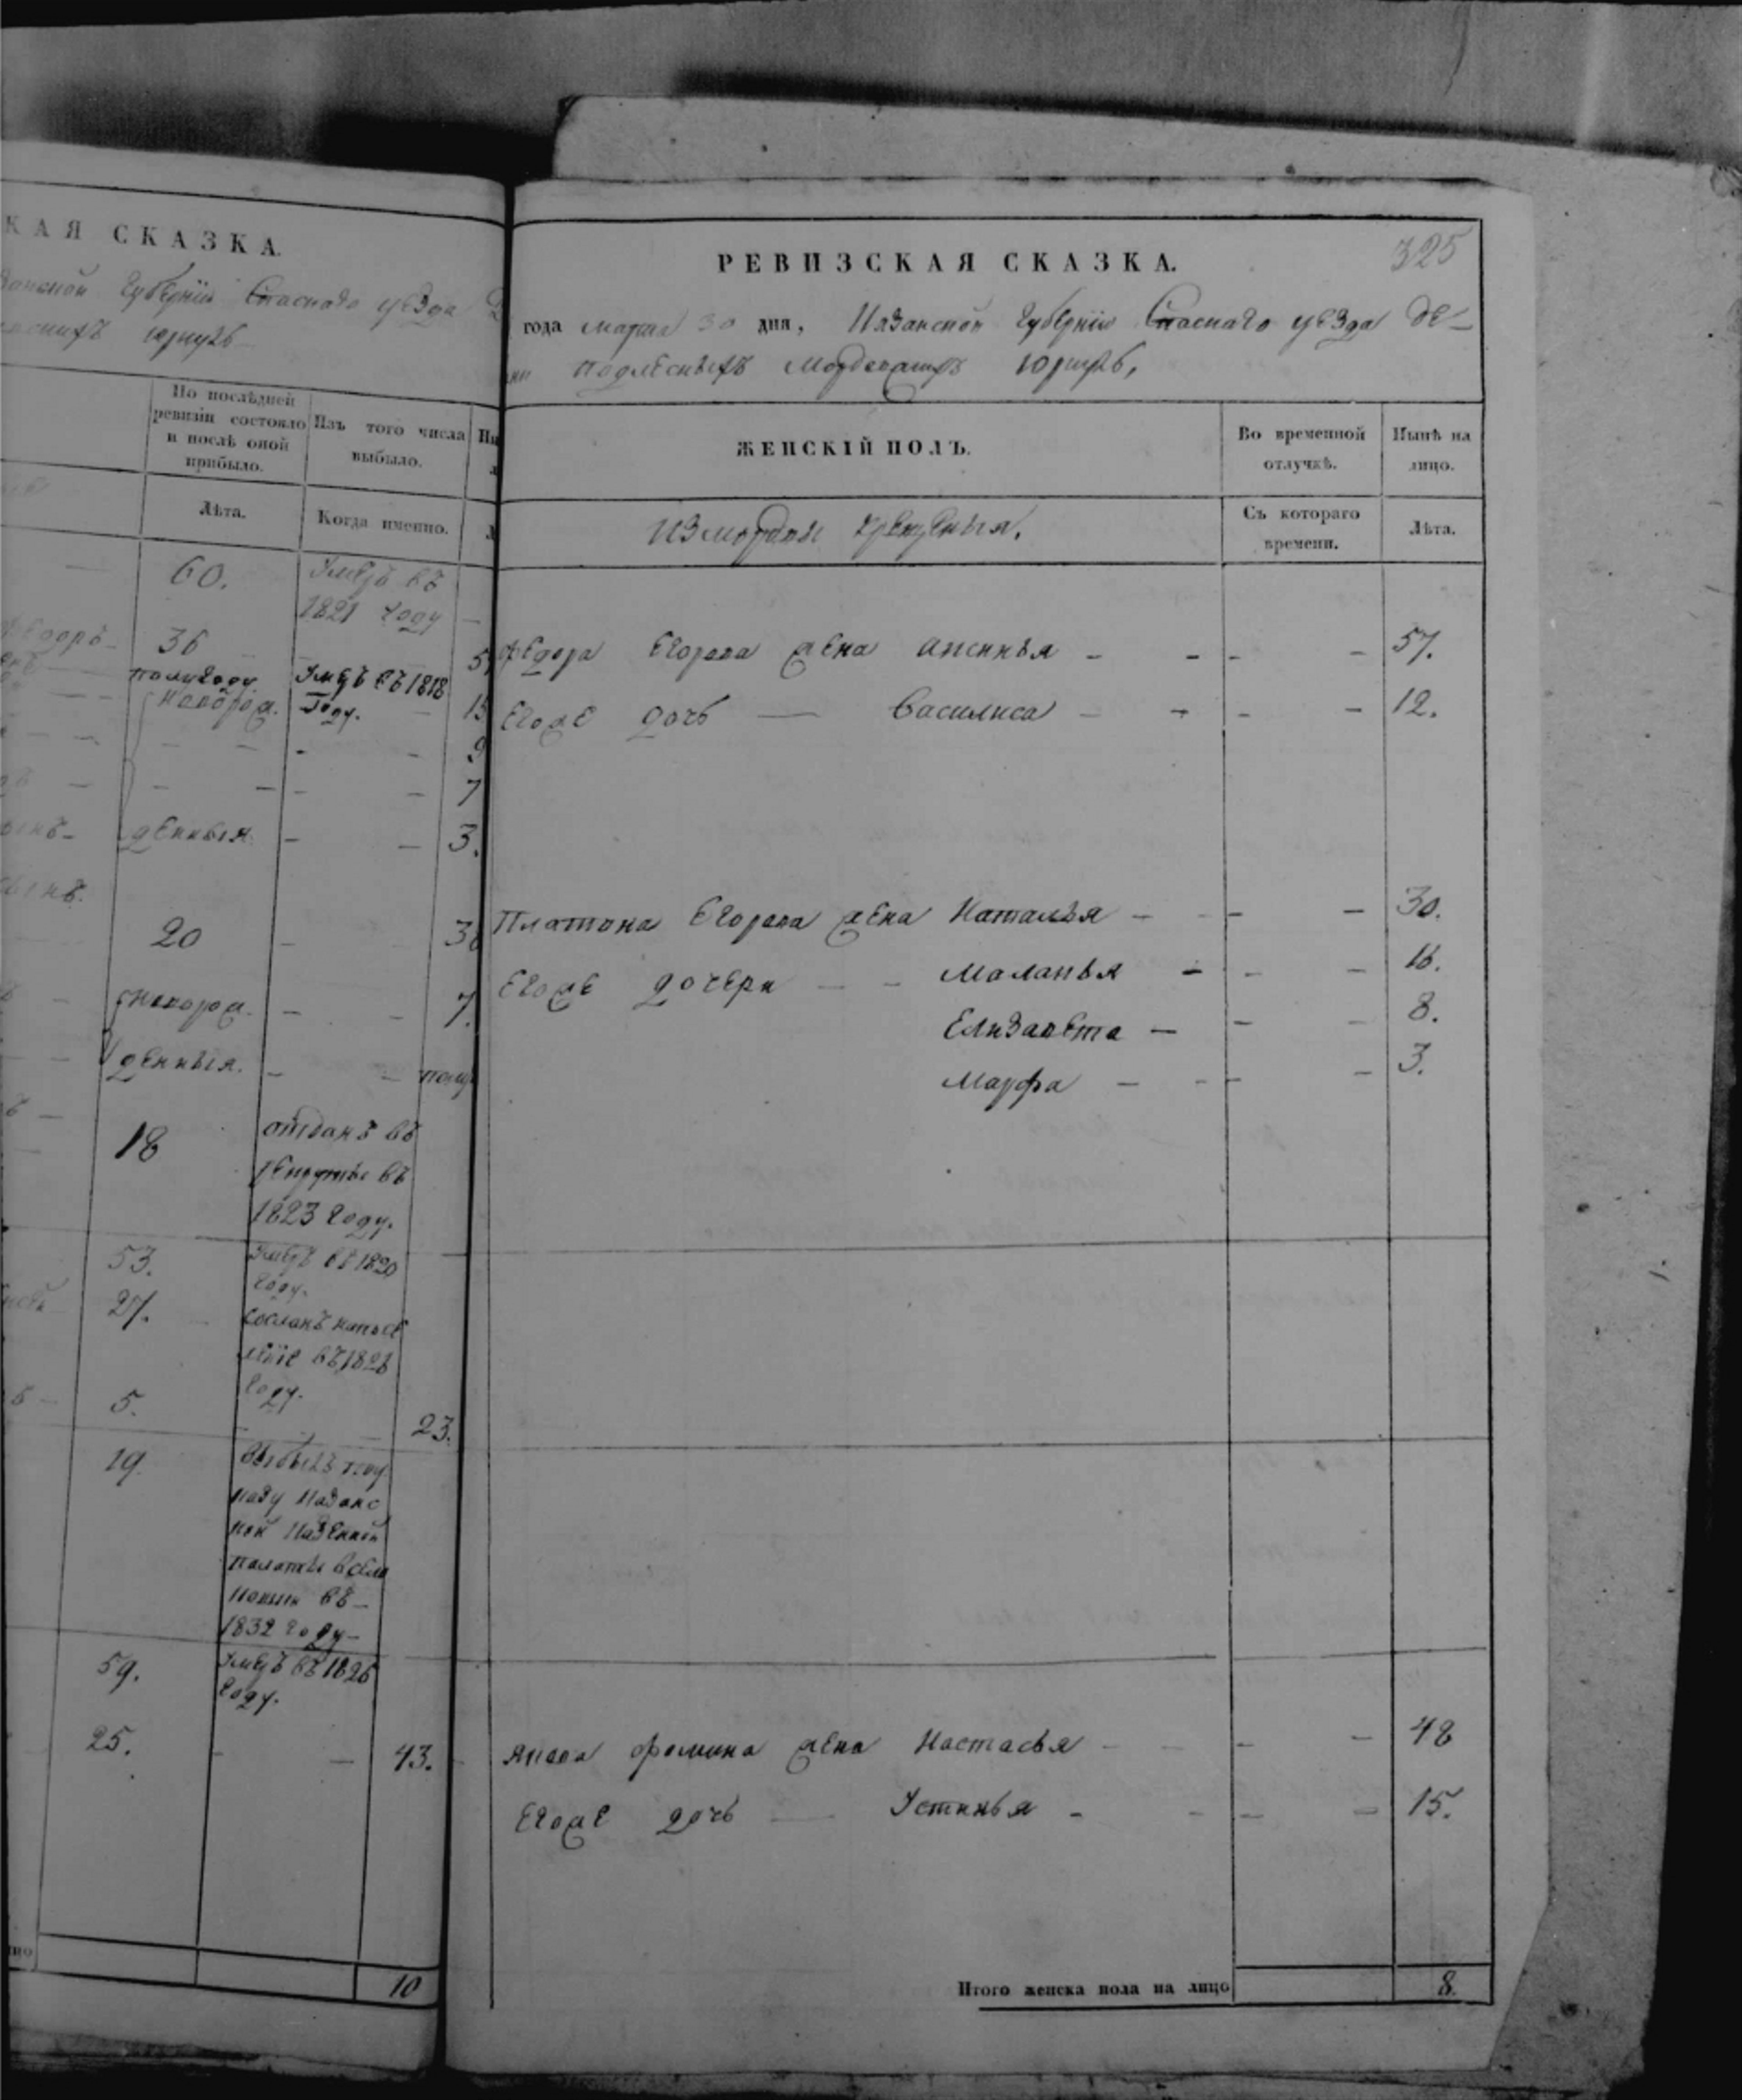 КАЯ СКАЗКА.
занской Губерніи Спаскаго уезда
юркулъ
По послѣдней ревизіи состояло и послѣ оной прибыло.
Изъ того числа выбыло.
Лѣта.
Когда именно.
60. Умеръ въ
1821 году
36
полугоду Умеръ въ 1818
новорож. году. 15
9
7
денныя 3.
20 30
новорож. 7.
денныя. полу
18 отданъ въ
рекруты въ
1823 году.
53. Умеръ въ 1820
году.
27. сосланъ напосе
леніе въ 182
году.
5. 23.
19. Выбылъ по у
казу Казанс
кой Казенной
палаты в село
въ
1832 году
59. Умеръ въ 1826
году.
25. 43.
10
325
РЕВИЗСКАЯ СКАЗКА.
года марта 30 дня, Казанской Губерніи Спаскаго уезда де-
вни подлесныхъ юркулъ,
ЖЕНСКІЙ ПОЛЪ.
Во временной отлучкѣ.
Нынѣ на лицо.
Съ котораго времени.
Лѣта.
Измордвы крещеныя.
Федора Егорова жена Аксинья - - - - 57.
Егоже дочь — Василиса - - - - 12.
Платона Егорова жена Наталья - - - - 30.
Егоже дочери - - Маланья - - - 16.
Елизавета - - - 8.
Марфа - - - - 3.
Якова Фомина жена Настасья - - - - 48
Егоже дочь — Устинья - - - - 15.
Итого женска пола на лицо 8.